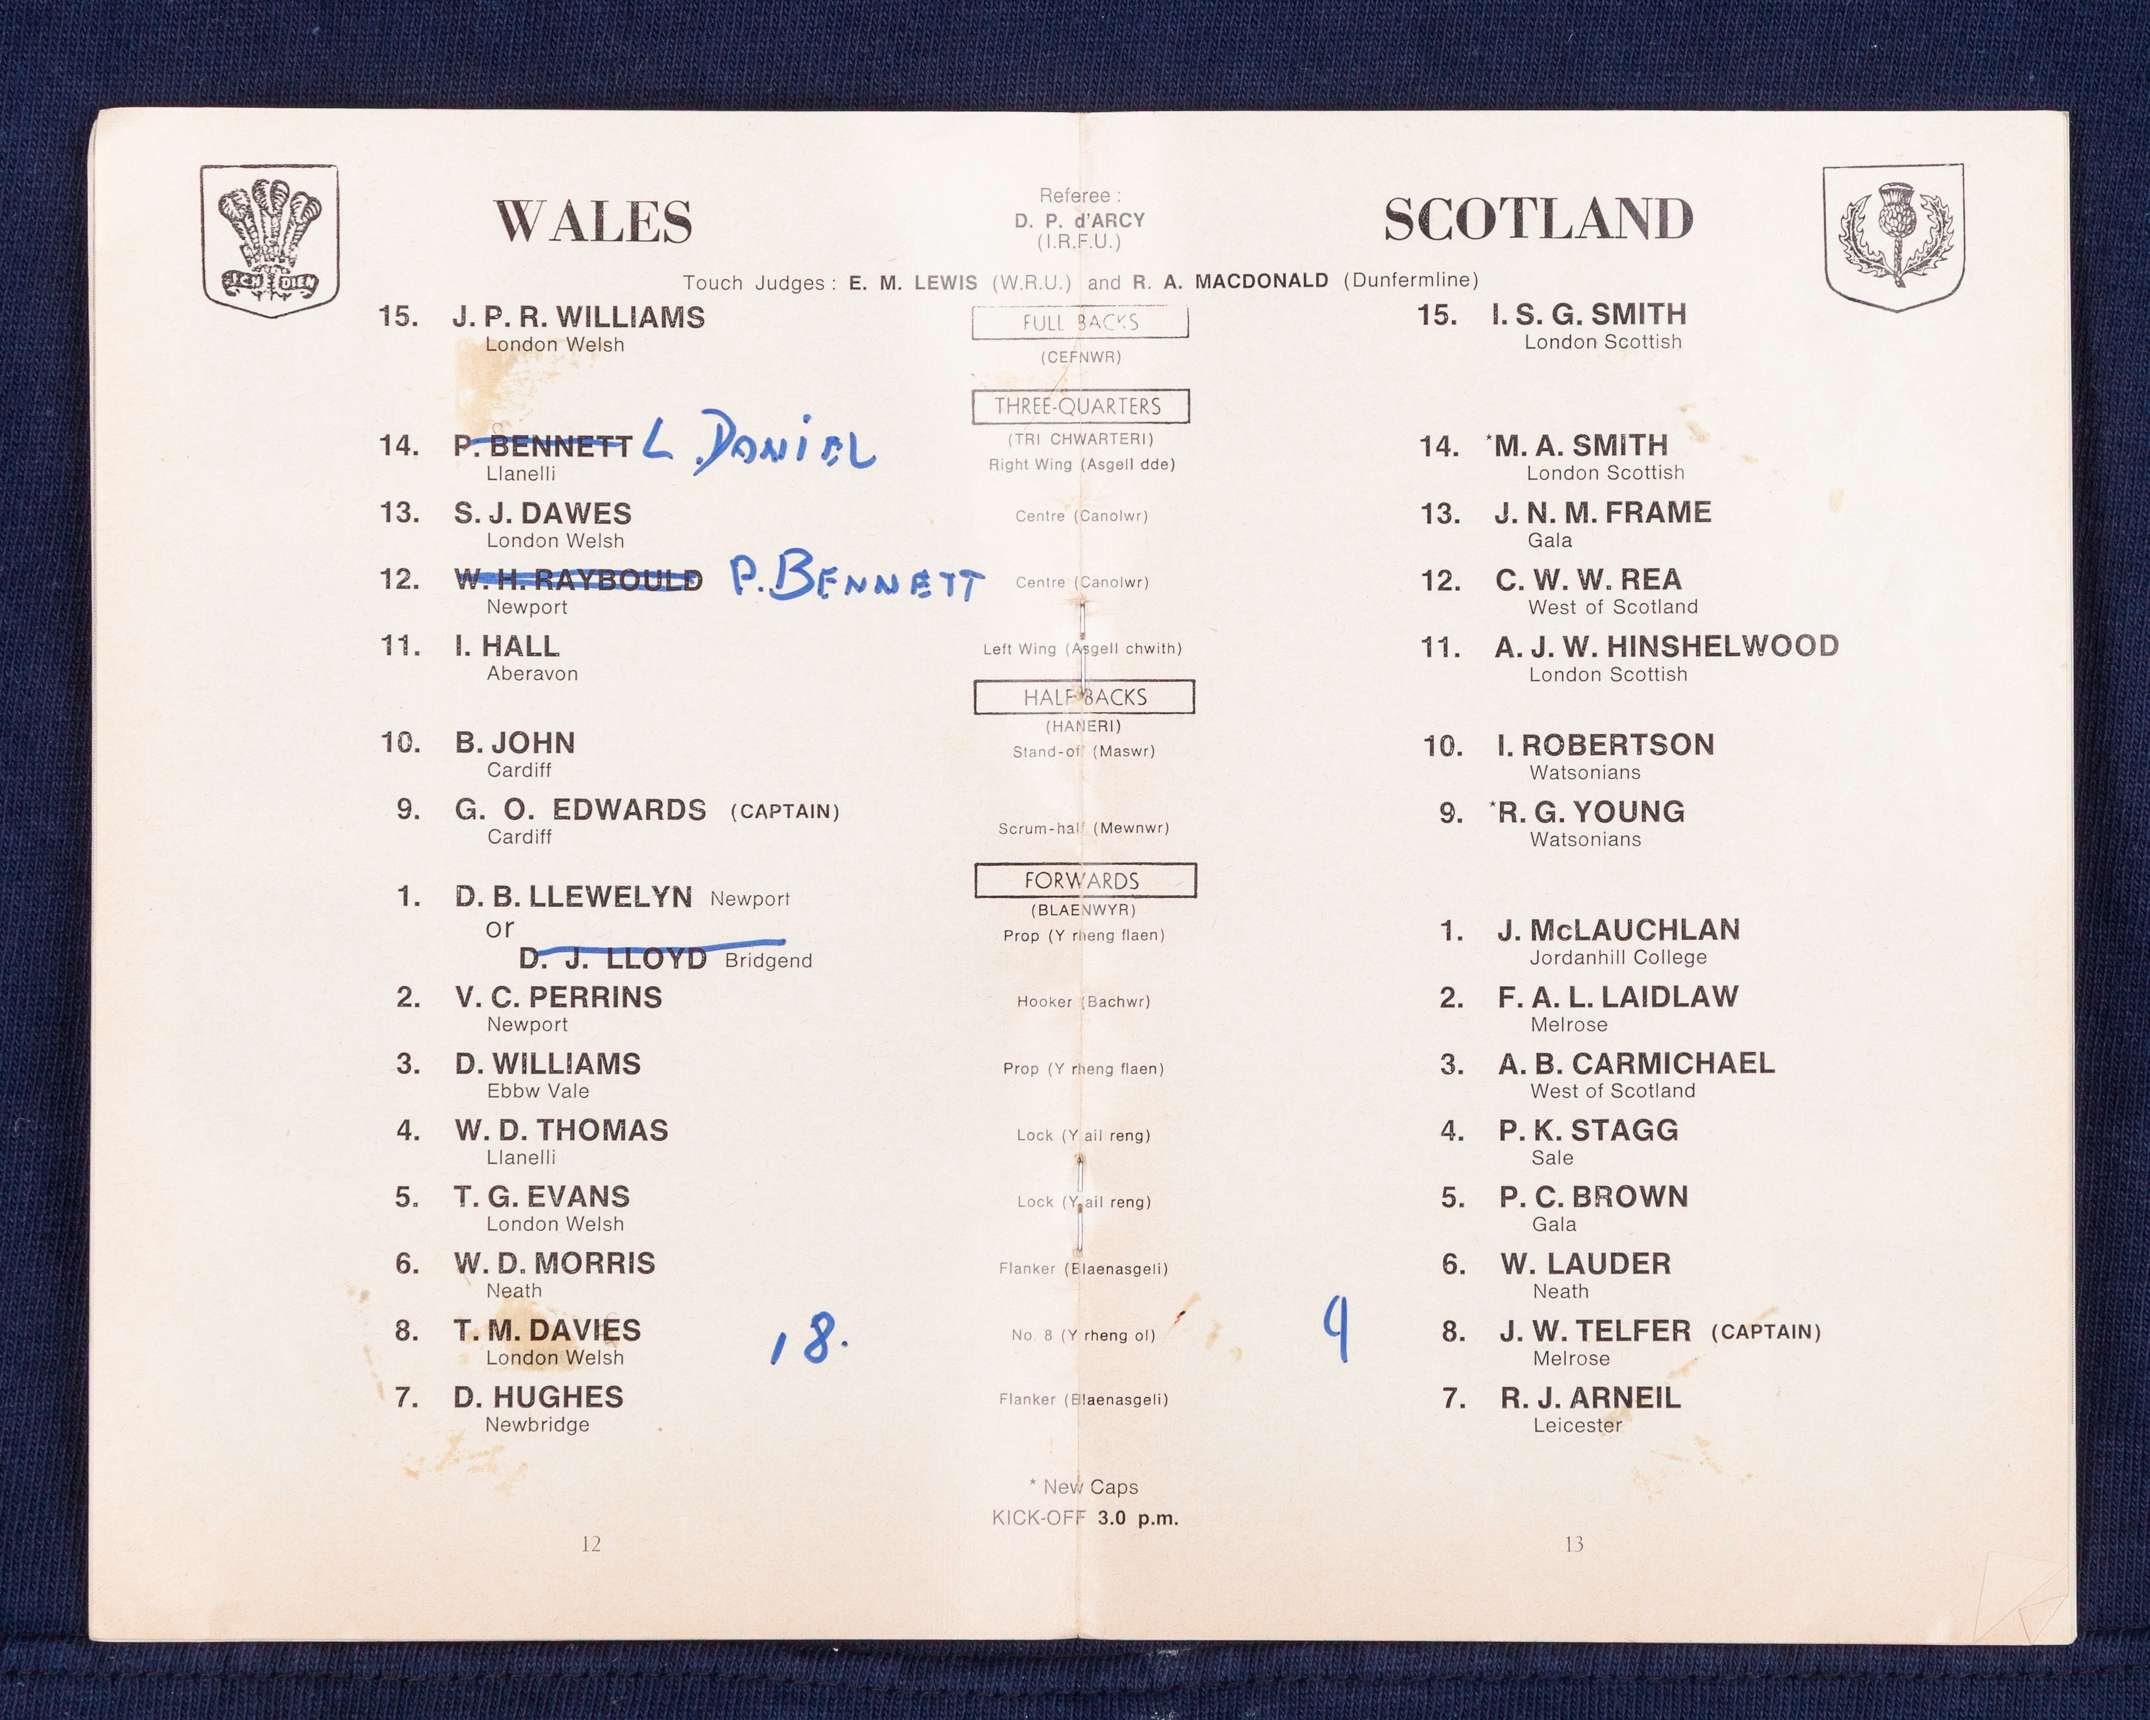 ICH DIEN
WALES
Referee :
D. P. d'ARCY
(I.R.F.U.)
SCOTLAND
Touch Judges : E. M. LEWIS (W.R.U.) and R. A. MACDONALD (Dunfermline)
15. J. P. R. WILLIAMS
London Welsh
FULL BACKS
(CEFNWR)
15. I. S. G. SMITH
London Scottish
THREE-QUARTERS
(TRI CHWARTERI)
14. P. BENNETT L. DANIEL
Llanelli
Right Wing (Asgell dde)
14. *M. A. SMITH
London Scottish
13. S. J. DAWES
London Welsh
Centre (Canolwr)
13. J. N. M. FRAME
Gala
12. W. H. RAYBOULD P. BENNETT
Newport
Centre (Canolwr)
12. C. W. W. REA
West of Scotland
11. I. HALL
Aberavon
Left Wing (Asgell chwith)
11. A. J. W. HINSHELWOOD
London Scottish
HALF BACKS
(HANERI)
10. B. JOHN
Cardiff
Stand-off (Maswr)
10. I. ROBERTSON
Watsonians
9. G. O. EDWARDS (CAPTAIN)
Cardiff
Scrum-half (Mewnwr)
9. *R. G. YOUNG
Watsonians
FORWARDS
(BLAENWYR)
1. D. B. LLEWELYN Newport
or
D. J. LLOYD Bridgend
Prop (Y rheng flaen)
1. J. McLAUCHLAN
Jordanhill College
2. V. C. PERRINS
Newport
Hooker (Bachwr)
2. F. A. L. LAIDLAW
Melrose
3. D. WILLIAMS
Ebbw Vale
Prop (Y rheng flaen)
3. A. B. CARMICHAEL
West of Scotland
4. W. D. THOMAS
Llanelli
Lock (Y ail reng)
4. P. K. STAGG
Sale
5. T. G. EVANS
London Welsh
Lock (Y ail reng)
5. P. C. BROWN
Gala
6. W. D. MORRIS
Neath
Flanker (Blaenasgeli)
6. W. LAUDER
Neath
8. T. M. DAVIES 18.
London Welsh
No. 8 (Y rheng ol)
9 8. J. W. TELFER (CAPTAIN)
Melrose
7. D. HUGHES
Newbridge
Flanker (Blaenasgeli)
7. R. J. ARNEIL
Leicester
* New Caps
KICK-OFF 3.0 p.m.
12
13